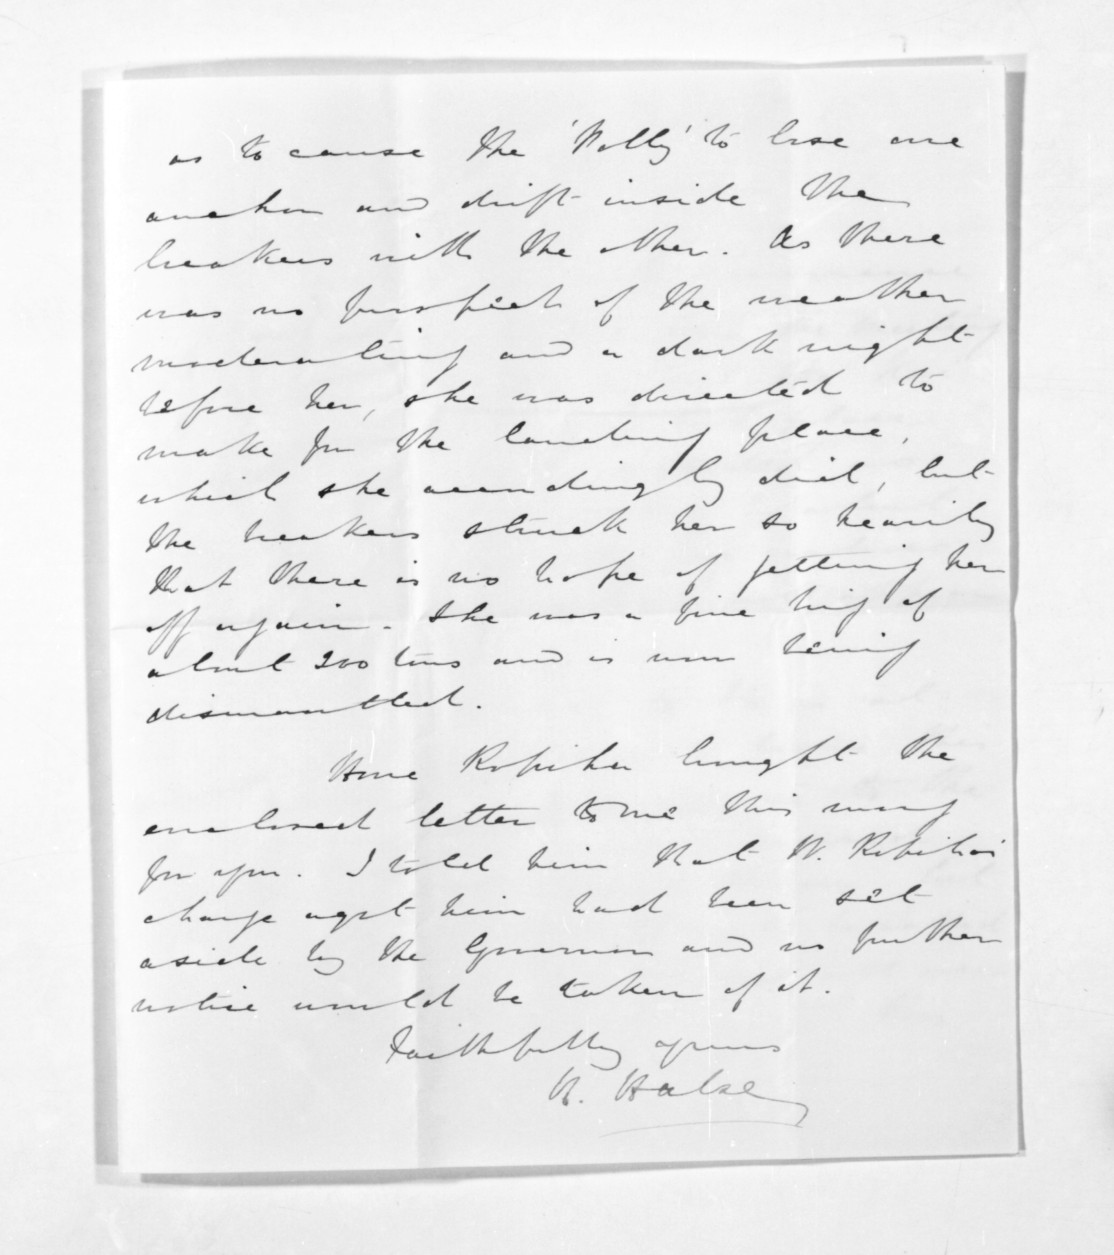 as to cause the 'Polly' to lose one
anchor and drift inside the
breakers with the other. As there
was no prospect of the weather
moderating and a dark night
before her, she was directed to
make for the landing place,
which she accordingly did, but
the breakers struck her so heavily
that there is no hope of getting her
off again. She was a fine brig of
about 200 tons and is now being
dismantled.
Hone Ropiha brought the
enclosed letter to me this morng
for you. I told him that W. Ropiha's
charge agst him had been set
aside by the Governor and no further
notice would be taken of it.
Faithfully yours
H. Halse